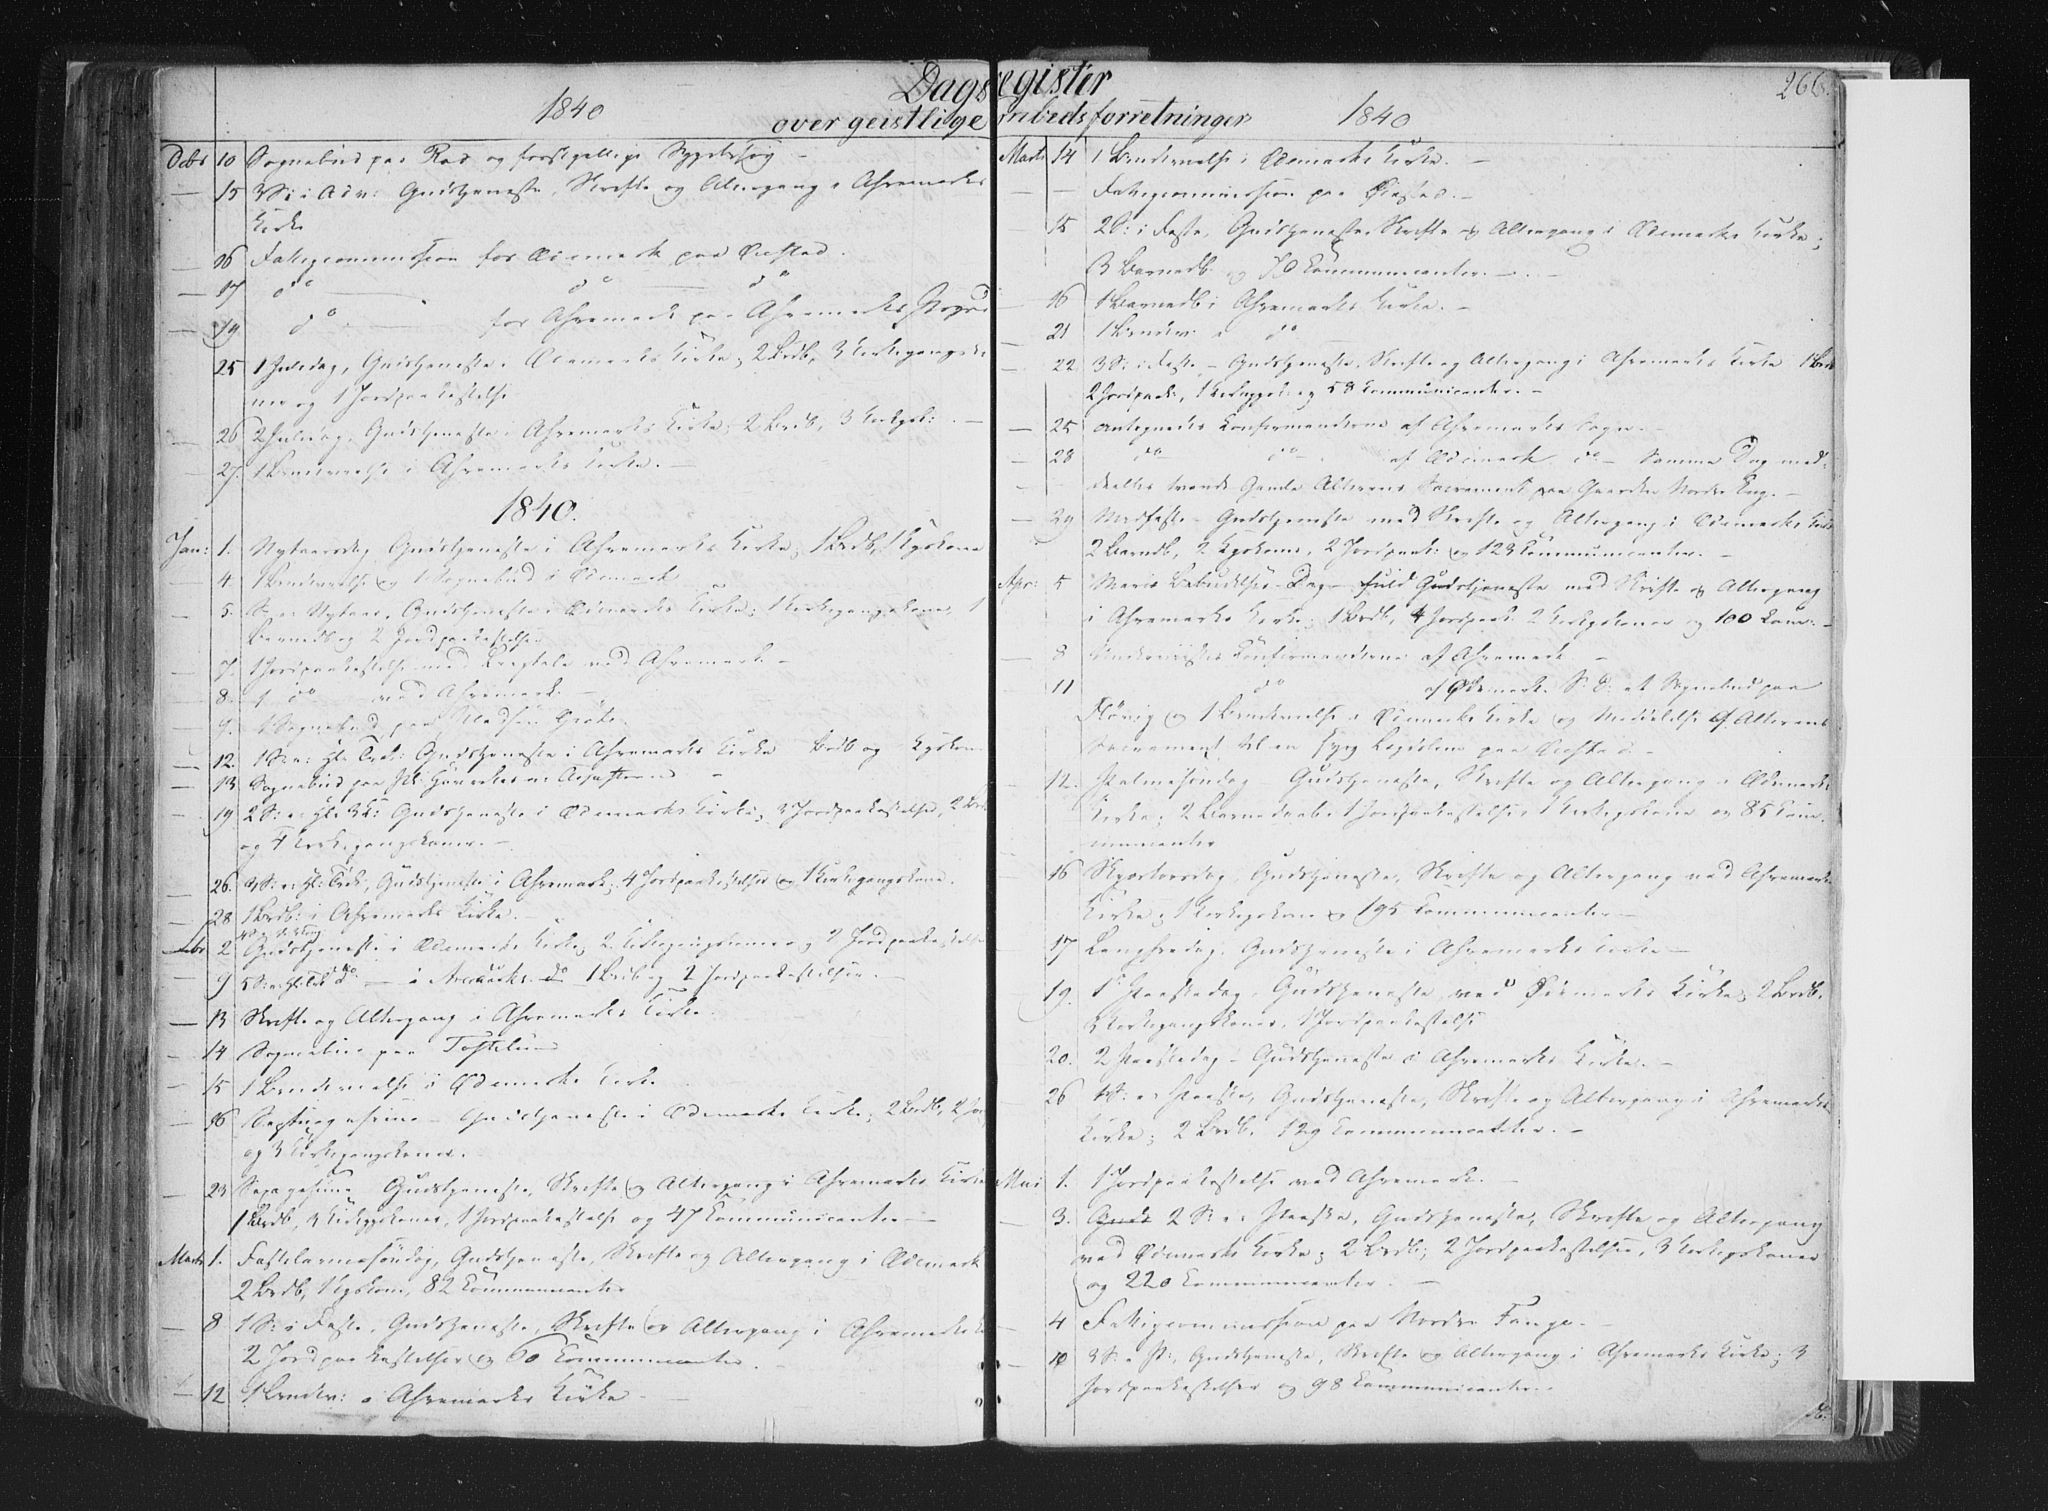 Dagsregister
266.
1840
over geistlige Embedsforretninger
1840
Decbr 10 Sognebud paa Rød og forskjellige Sygebesøg –
— 15 3 S: i Adv: Gudstjeneste, Skrifte og Altergang i Ahremarks
Kirke
— 16 Fattigcommission for Ødemark paa
— 17 do — do — do
— 19 do — for Ahremark paa Ahremarks
25 1 Juledag, Gudstjeneste i Ødemarks Kirke; 2 Brdb, 3 Kirkegangsko
ner og 1 Jordpaakastelse
— 26 2 Juledag, Gudstjeneste i Ahremarks Kirke; 2 Brdb, 3 Kirkegk: –
— 27. 1 Brudevielse i Ahremarks Kirke. –
1840.
Jan: 1. Nytaarsdag Gudstjeneste i Ahremarks Kirke, 1 Brdb, 1 Kgskone
— 4. 1 Brudevielse og 1 Sognebud i Ødemark
— 5. S. e: Nytaar, Gudstjeneste i Ødemarks Kirke; 1 Kirkegangskone, 1
Barnedb og 2 Jordpaakastelser
— 7. 1 Jordpaakastelse med Liigtale ved Ahremark –
— 8. 1 do — ved Ahremark –
— 9. 1 Sognebud paa
— 12. 1 S: e: Hl: Trek: Gudstjeneste i Ahremarks Kirke Brdb og Kgskone
— 13 Sognebud paa
— 19 2 S: e: Hl: 3K: Gudstjeneste i Ødemarks Kirke; 3 Jordpaakastelser, 2 Brdb
og 4 Kirkegangskoner. –
26. 3 S: e: Hl: Trek:, Gudstjeneste i Ahremark; 4 Jordpaakastelser og 1 Kirkegangskone.
— 28 1 Brdb: i Ahremarks Kirke. –
Febr 2 Gudstjeneste i Ødemarks Kirke, 2 Kirkegangskoner og 2 Jordpaakastelser
— 9 5 S: e: Hl: do — i Aremarks do 1 Brdb og 2 Jordpaakastelser. –
— 13 Skrifte og Altergang i Ahremarks Kirke.
— 14 Sognebud paa
— 15 1 Brudevielse i Ødemarks Kirke
— 16 Septuagesima – Gudstjeneste i Ødemarks Kirke; 2 Brdb, 2
og 3 Kirkegangskoner. –
— 23 Gudstjeneste, Skrifte og Altergang i Ahremarks Kirke
1 Brdb, 3 Kirkegskoner, 1 Jordpaakastelse og 47 Communicanter –
Marts 1. Fastelavnssøndag, Gudstjeneste, Skrifte og Altergang i Ødemark
2 Brdb, 1 Kgskone, 82 Communicanter
— 8 1 S: i Faste, Gudstjeneste, Skrifte og Altergang i Ahremarks K
2 Jordpaakastelser og 60 Communicanter. –
— 12 1 Brudev: i Ahremarks Kirke –
Marts 14 1 Brudevielse i Ødemarks Kirke. –
— — Fattigcommission paa
— 15 2 S: i Faste, Gudstjeneste, Skrifte og Altergang i Ødemarks Kirke;
3 Barnedb og 70 Communicanter. –
— 16 1 Barnedb i Ahremarks Kirke. –
— 21 1 Brudev: i do
— 22 3 S: i Faste – Gudstjeneste, Skrifte og Altergang i Ahremarks Kirke 1 Brdb
2 Jordpaak:, 1 Kirkegk: og 58 Communicanter. –
— 25 antegnedes Confirmanderne af Ahremarks Sogn. –
— 28 do — do — af Ødemark do – Samme Dag med-
deeltes tvende Gamle Alterens Sacrament paa Gaarden Nordre Eng. –
— 29 Midfaste – Gudstjeneste med Skrifte og Altergang i Ødemarks Kirke
2 Barndb, 2 Kgskone, 2 Jordpaak: og 123 Communicanter. –
Apr: 5 Mariæ Bebudelses-Dag – fuld Gudstjeneste med Skrifte og Altergang
i Ahremarks Kirke; 1 Brdb, 4 Jordpaak: 2 Kirkegskoner og 100 Com: –
— 8 Underviistes Confirmanderne af Ahremark –
— 11 do af Ødemark. S: D: et Sognebud paa
og 1 Brudevielse i Ødemarks Kirke og Meddelelse af Alterens
Sacrament til en syg paa
— 12. Palmesøndag – Gudstjeneste, Skrifte og Altergang i Ødemarks
Kirke; 2 Barnedaab 1 Jordpaakastelse 1 Kirkegskone og 85 Com-
municanter
— 16 Skjærtorsdag, Gudstjeneste, Skrifte og Altergang ved Ahremarks
Kirke; 1 Kirkegskone og 195 Communicanter –
— 17 Langfredag. Gudstjeneste i Ahremarks Kirke –
— 19. 1 Paaskedag. Gudstjeneste ved Ødemarks Kirke; 2 Brdb,
3 Kirkegangskoner, 1 Jordpaakastelse
— 20. 2 Paaskedag – Gudstjeneste i Ahremarks Kirke. –
— 26 1 S: e: Paaske, Gudstjeneste, Skrifte og Altergang i Ahremarks
Kirke; 2 Brdb. 129 Communicanter. –
Mai 1. 1 Jordpaakastelse ved Ahremark. –
— 3. Guds 2 S: e: Paaske, Gudstjeneste, Skrifte og Altergang
ved Ødemarks Kirke; 2 Brdb; 2 Jordpaakastelser, 3 Kirkegskoner
og 220 Communicanter. –
— 4 Fattigcommission paa Nordre Fange. –
— 10 3 S: e: P:, Gudstjeneste, Skrifte og Altergang i Ahremarks Kirke; 3
Jordpaakastelser og 98 Communicanter. –